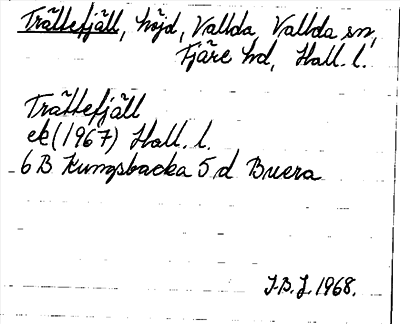 Trättefjäll, höjd, Vallda, Vallda sn,
Fjäre hd, Hall. l.
Trättefjäll
ek (1967) Hall. l.
6 B Kungsbacka 5 d Buera
J.B.J. 1968.